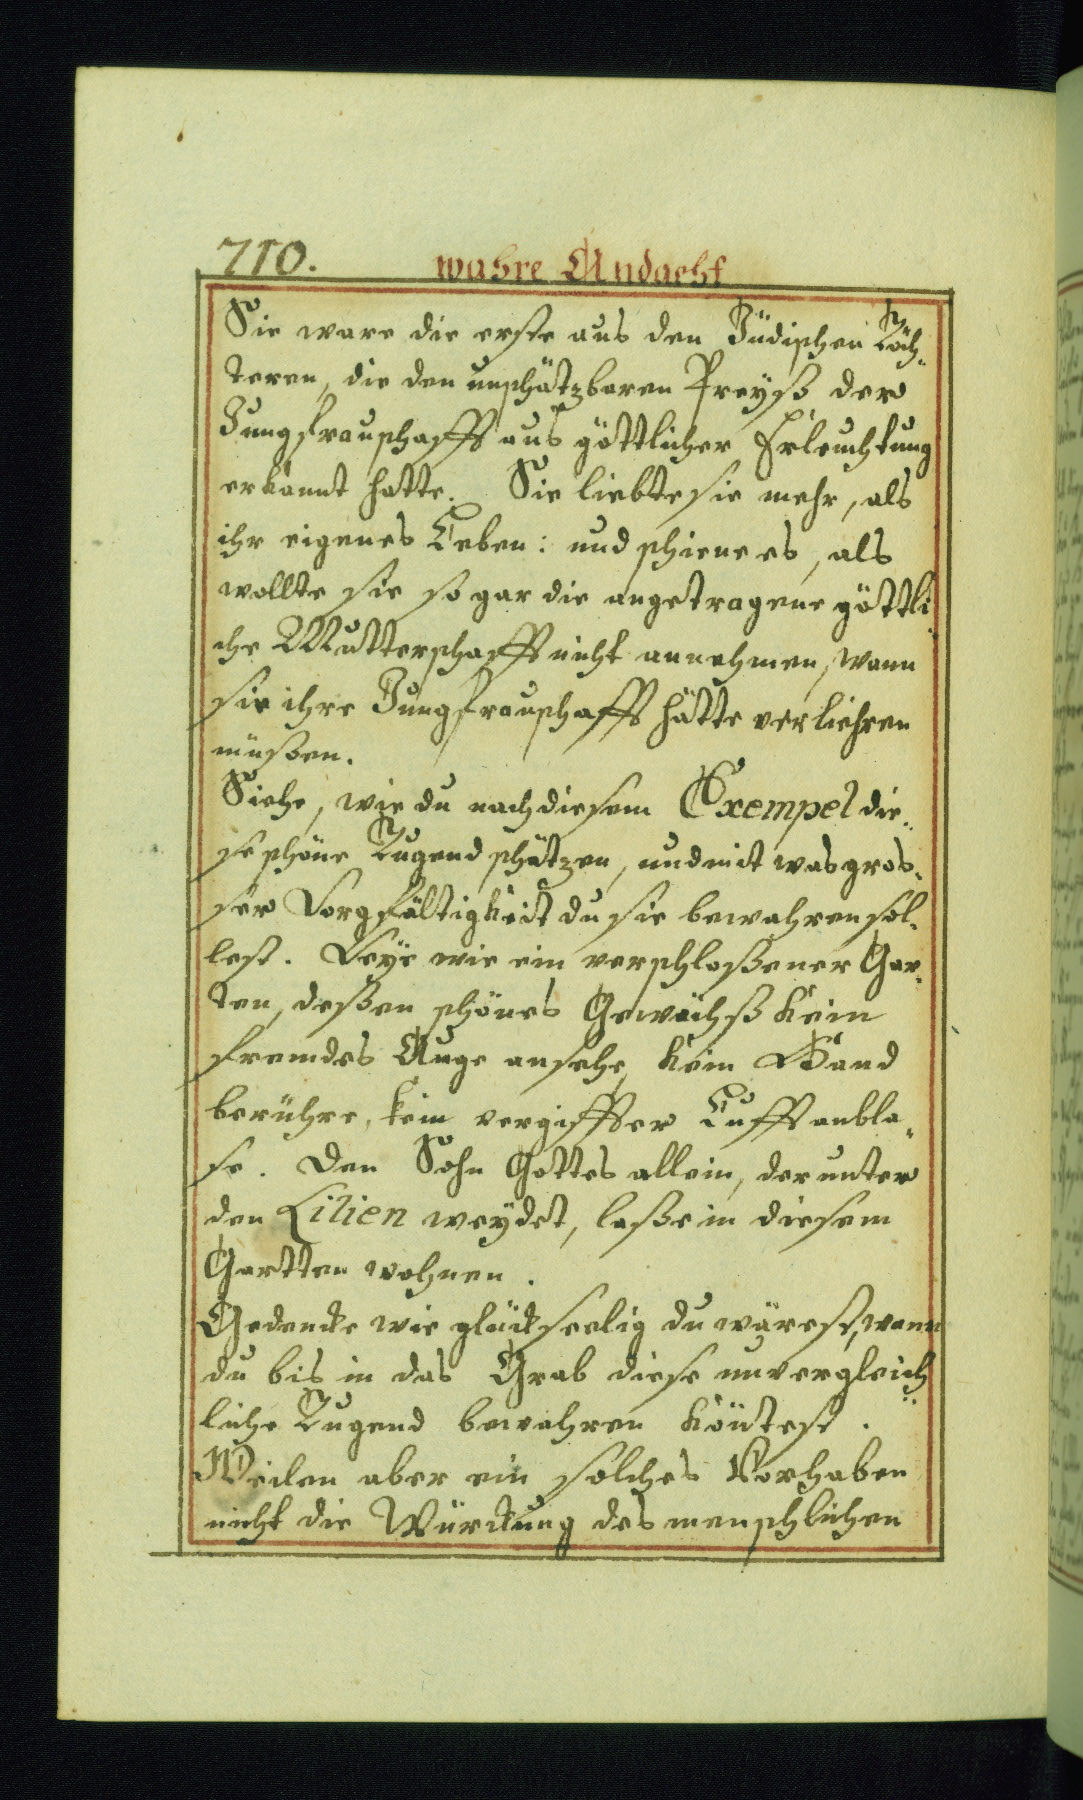 710.
wahre Andacht
Sie ware die erste aus den Jüdischen Töch„
teren, die den unschätzbaren Preyß der
Jungfrauschafft aus göttlicher Erleuchtung
erkannt hatte. Sie liebte sie mehr, als
ihr eigenes Leben: und schiene es, als
wollte sie so gar die angetragene göttli„
che Mutterschafft nicht annehmen, wann
sie ihre Jungfrauschafft hätte verliehren
müßen.
Siehe, wie du nach diesem Exempel die„
se schöne Tugend schätzen, und mit was gros„
ser Sorgfältigkeit du sie bewahren sol„
lest. Seye wie ein verschloßener Gar„
ten, deßen schönes Gewächß kein
fremdes Auge ansehe, kein Hand
berühre, kein vergiffter Lufft anbla„
se. Den Sohn Gottes allein, der unter
den Lilien weydet, laße in diesem
Gartten wohnen.
Gedencke wie glückseelig du wärest, wann
du bis in das Grab diese unvergleich„
liche Tugend bewahren köntest.
Weilen aber ein solches Vorhaben
nicht die Würckung des menschlichen